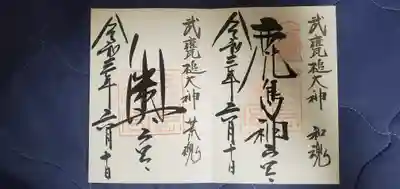 武甕槌大神 和魂
鹿島神宮
令和三年六月十日
武甕槌大神 荒魂
奥宮
令和三年六月十日